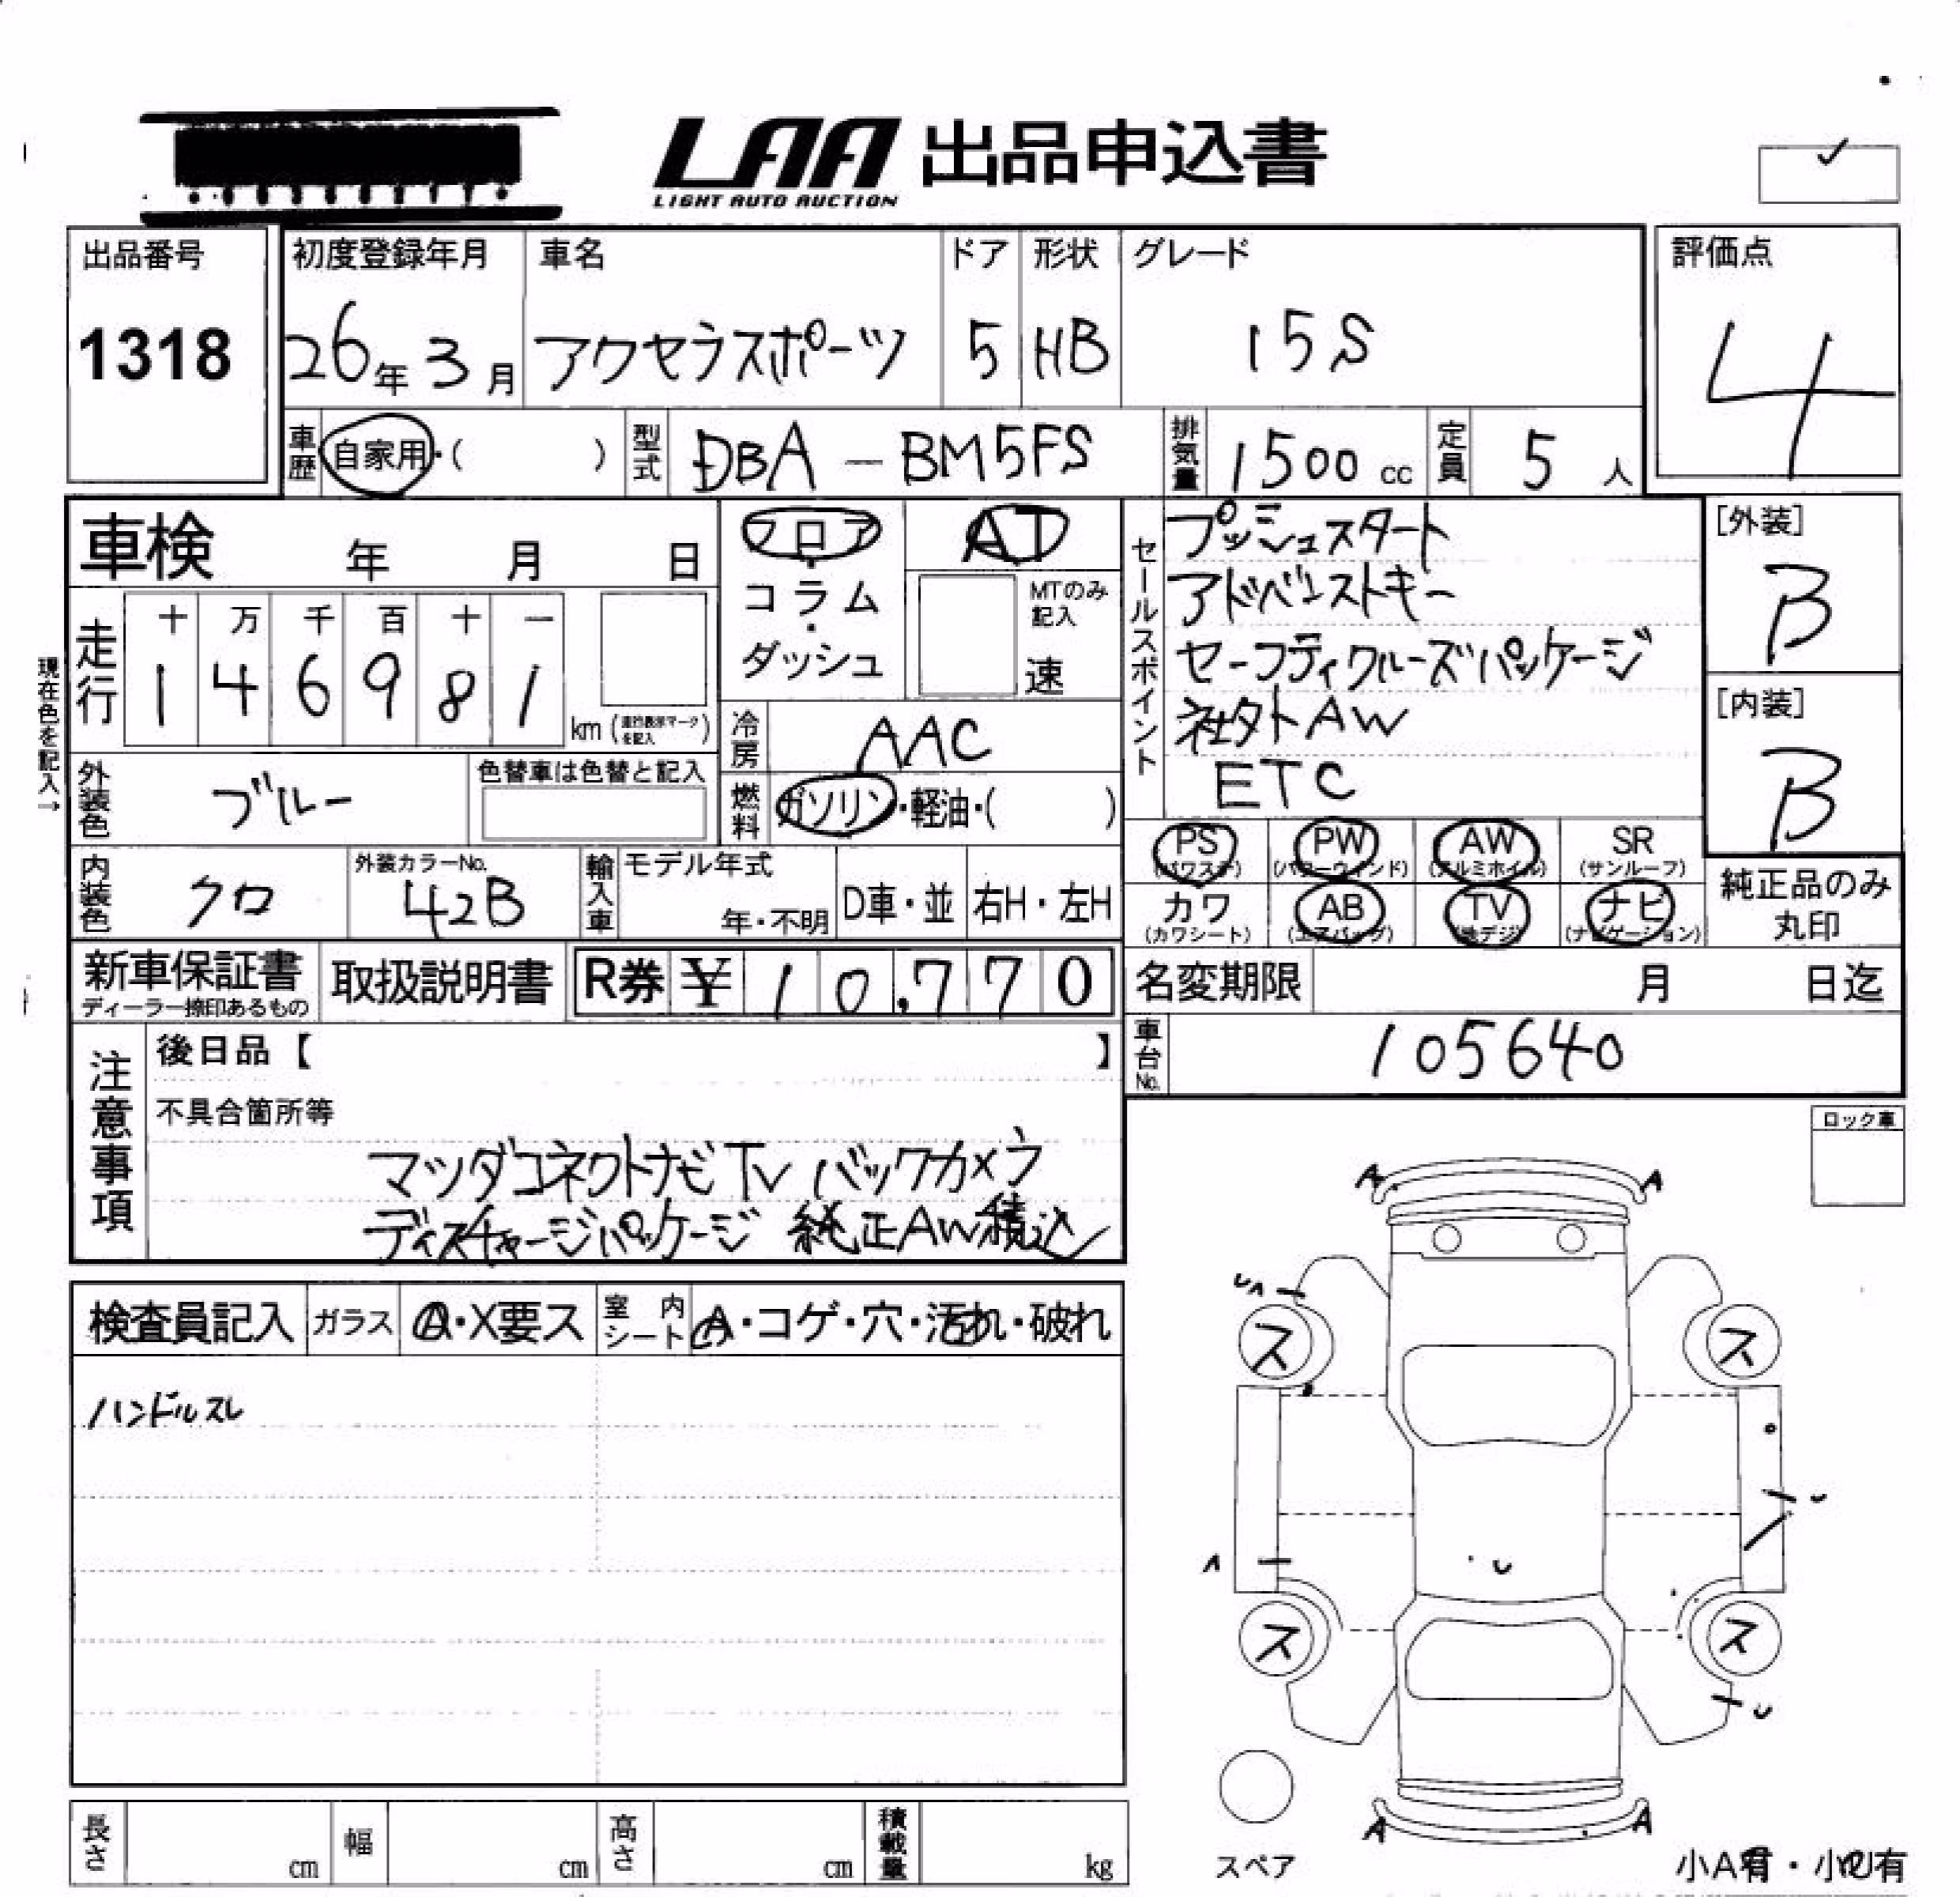 LAA 出品申込書
LIGHT AUTO AUCTION
出品番号
1318
初度登録年月
26年3月
車名
アクセラスポーツ
ドア
5
形状
HB
グレード
15S
評価点
4
車歴
自家用・( )
型式
DBA-BM5FS
排気量
1500cc
定員
5人
車検 年 月 日
フロア・コラム・ダッシュ
AT
MTのみ記入
速
現在色を記入→
走行
十 万 千 百 十 一
1 4 6 9 8 1
km (走行表示マークを記入)
冷房
AAC
外装色
ブルー
色替車は色替と記入
燃料
ガソリン・軽油・( )
内装色
クロ
外装カラーNo.
42B
輸入車
モデル年式
年・不明
D車・並
右H・左H
セールスポイント
プッシュスタート
アドバンストキー
セーフティクルーズパッケージ
社外AW
ETC
[外装]
B
[内装]
B
PS
(パワステ)
PW
(パワーウィンド)
AW
(アルミホイル)
SR
(サンルーフ)
カワ
(カワシート)
AB
(エアバッグ)
TV
(地デジ)
ナビ
(ナビゲーション)
純正品のみ
丸印
新車保証書
ディーラー捺印あるもの
取扱説明書
R券 ¥10,770
名変期限 月 日迄
車台No.
105640
注意事項
後日品【 】
不具合箇所等
マツダコネクトナビTV バックカメラ
ディスチャージパッケージ 純正AW積込
ロック車
検査員記入
ガラス
A・X要ス
室内シート
A・コゲ・穴・汚れ・破れ
ハンドルスレ
A A
ス ス
U
A
U
ス ス
U
A A
スペア
小A有・小U有
長さ cm
幅 cm
高さ cm
積載量 kg